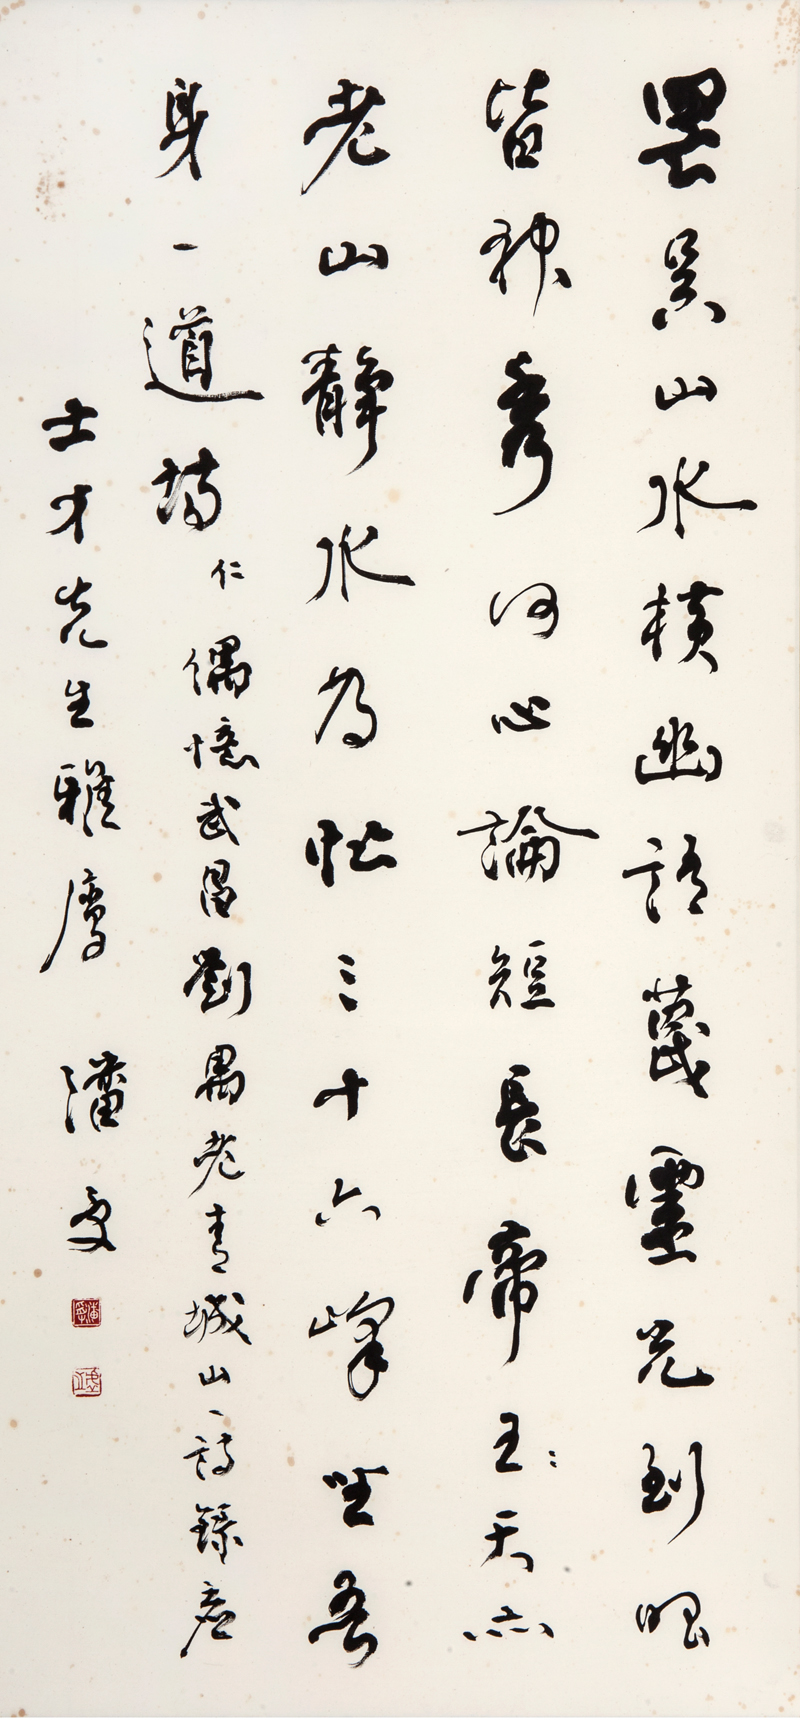 山水橫幽語蔑靈光到眼
皆神秀何心論短長帝王天亦
老山靜水為忙三十六峰坐吾
身一道場 仁 偶憶武昌劉禺老青城山詩錄應
士才先生雅屬 潘受